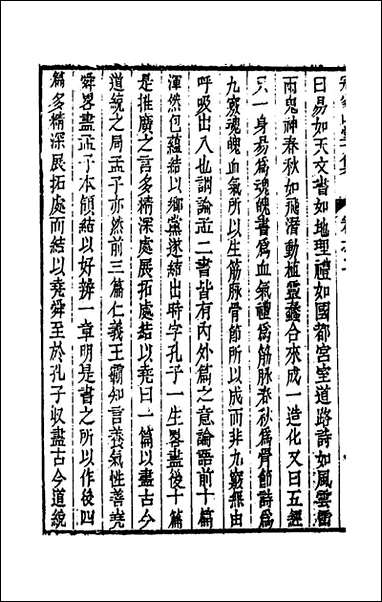 曰易如天文書如地理禮如國都宮室道路詩如風雲雷
雨鬼神春秋如飛潛動植靈蠢合來成一造化又曰五經
只一身易爲魂魄書爲血氣禮爲筋脉春秋爲骨節詩爲
九竅魂魄血氣所以生筋脉骨節所以成而非九竅無由
呼吸出入也謂論孟二書皆有內外篇之意論語前十篇
渾然包蘊結以鄉黨遂結出時字孔子一生畧盡後十篇
是推廣之言多精深處展拓處結以堯曰一篇以盡古今
道統之局孟子亦然前三篇仁義王霸知言養氣性善堯
舜畧盡孟子本領結以好辨一章明是書之所以作後四
篇多精深展拓處而結以堯舜至於孔子収盡古今道統